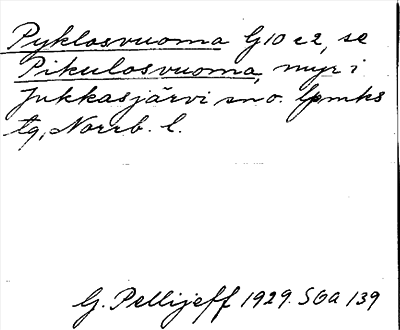 Pyklosvuoma G10 e2, se
Pikulosvuoma, myr i
Jukkasjärvi sn o. lpmks
tg, Norrb. l.
G. Pellijeff 1929. SOA 139